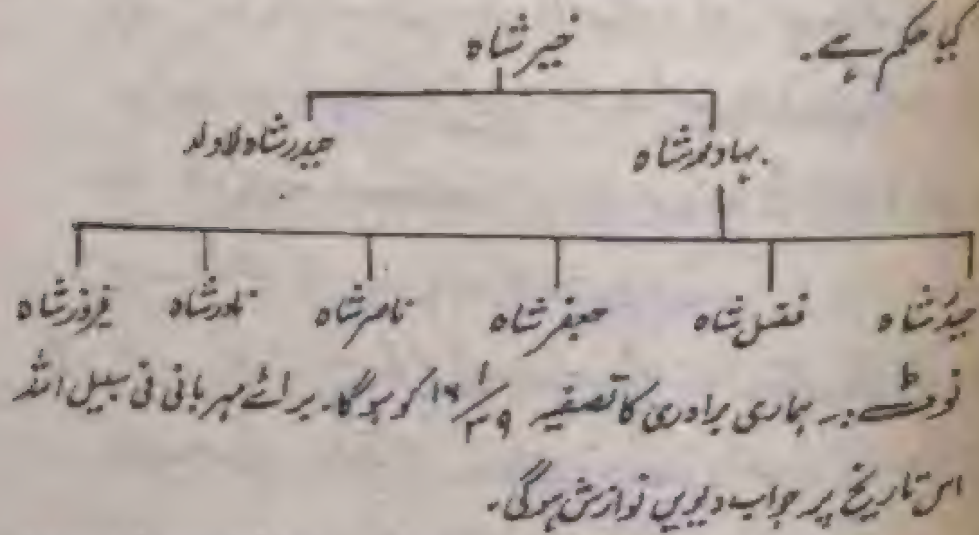 کیا حکم ہے۔
خیبر شاہ
بہادر شاہ حیدر شاہ لاولد
حیدر شاہ فضل شاہ جعفر شاہ ناصر شاہ نادر شاہ فیروز شاہ
نوٹ :۔ ہماری برادری کا تصفیہ کو ہوگا۔ برائے مہربانی فی سبیل اللہ
اس تاریخ پر جواب دیویں نوازش ہوگی۔